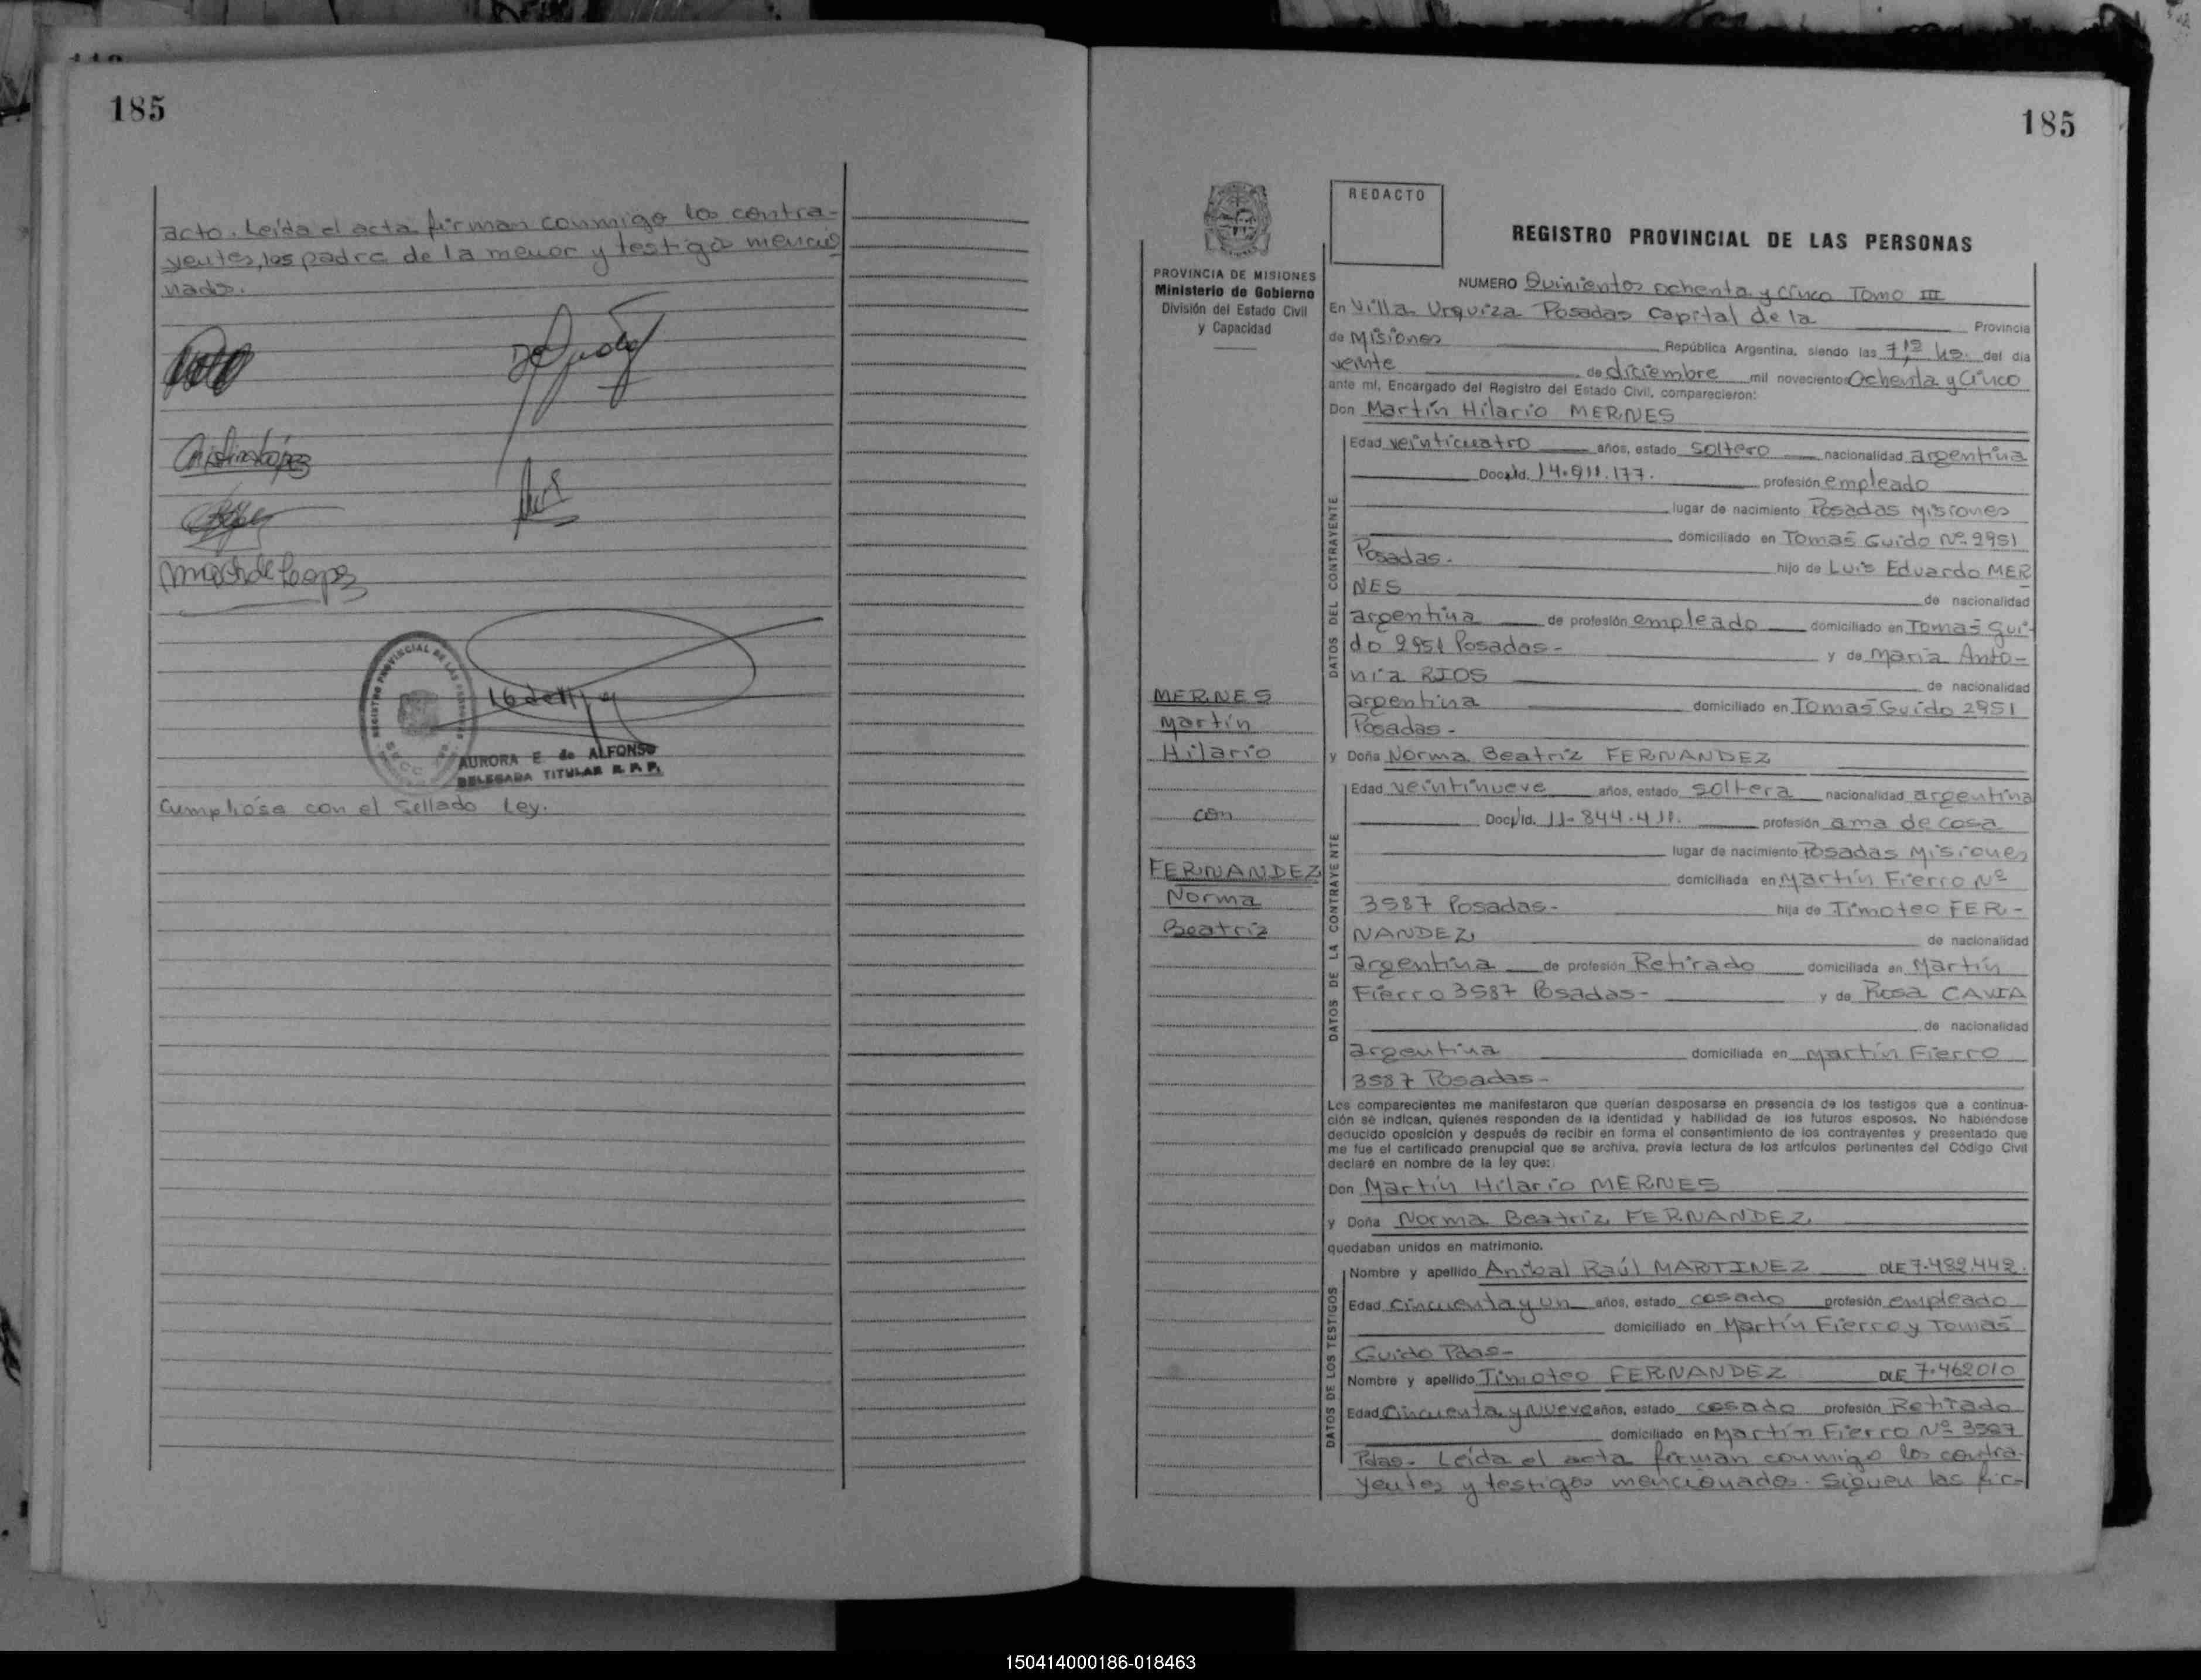 185
acto. Leída el acta firman conmigo los contra-
yentes, los padre de la menor y testigos mencio
nados.
Cristina López
16 de
REGISTRO PROVINCIAL DE LAS PERSONAS
AURORA E. de ALFONSO
DELEGADA TITULAR R.P.P.
Cumplióse con el Sellado Ley.
185
REDACTO
REGISTRO PROVINCIAL DE LAS PERSONAS
PROVINCIA DE MISIONES
Ministerio de Gobierno
División del Estado Civil
y Capacidad
MERNES
Martín
Hilario
con
FERNANDEZ
Norma
Beatriz
NUMERO Quinientos ochenta y cinco Tomo III
En Villa Urquiza Posadas Capital de la Provincia
de Misiones República Argentina, siendo las hs. del día
veinte de diciembre mil novecientos Ochenta y Cinco
ante mí, Encargado del Registro del Estado Civil, comparecieron:
Don Martín Hilario MERNES
DATOS DEL CONTRAYENTE
Edad veinticuatro años, estado soltero nacionalidad argentina
Doc. Id. 14.911.177. profesión empleado
lugar de nacimiento Posadas Misiones
domiciliado en Tomas Guido Nº 2951
Posadas. hijo de Luis Eduardo MER
NES de nacionalidad
argentina de profesión empleado domiciliado en Tomas Gui-
do 2951 Posadas- y de María Anto-
nia RIOS de nacionalidad
argentina domiciliado en Tomas Guido 2951
Posadas-
y Doña Norma Beatriz FERNANDEZ
DATOS DE LA CONTRAYENTE
Edad veintinueve años, estado soltera nacionalidad argentina
Doc. Id. 11-844.411. profesión ama de casa
lugar de nacimiento Posadas Misiones
domiciliada en Martín Fierro Nº
3587 Posadas- hija de Timoteo FER-
NANDEZ de nacionalidad
argentina de profesión Retirado domiciliada en Martín
Fierro 3587 Posadas- y de Rosa CAVIA
de nacionalidad
argentina domiciliada en Martín Fierro
3587 Posadas-
Los comparecientes me manifestaron que querían desposarse en presencia de los testigos que a continua-
ción se indican, quienes responden de la identidad y habilidad de los futuros esposos. No habiéndose
deducido oposición y después de recibir en forma el consentimiento de los contrayentes y presentado que
me fue el certificado prenupcial que se archiva, previa lectura de los artículos pertinentes del Código Civil
declaré en nombre de la ley que:
Don Martín Hilario MERNES
y Doña Norma Beatriz FERNANDEZ
quedaban unidos en matrimonio.
DATOS DE LOS TESTIGOS
Nombre y apellido Anibal Raúl MARTINEZ DLE 7.482.442.
Edad Cincuenta y un años, estado casado profesión empleado
domiciliado en Martín Fierro y Tomas
Guido Pdas-
Nombre y apellido Timoteo FERNANDEZ DLE 7.462010
Edad Cincuenta y Nueve años, estado casado profesión Retirado
domiciliado en Martín Fierro Nº 3587
Pdas- Leída el acta firman conmigo los contra-
yentes y testigos mencionados. Siguen las fir-
150414000186-018463